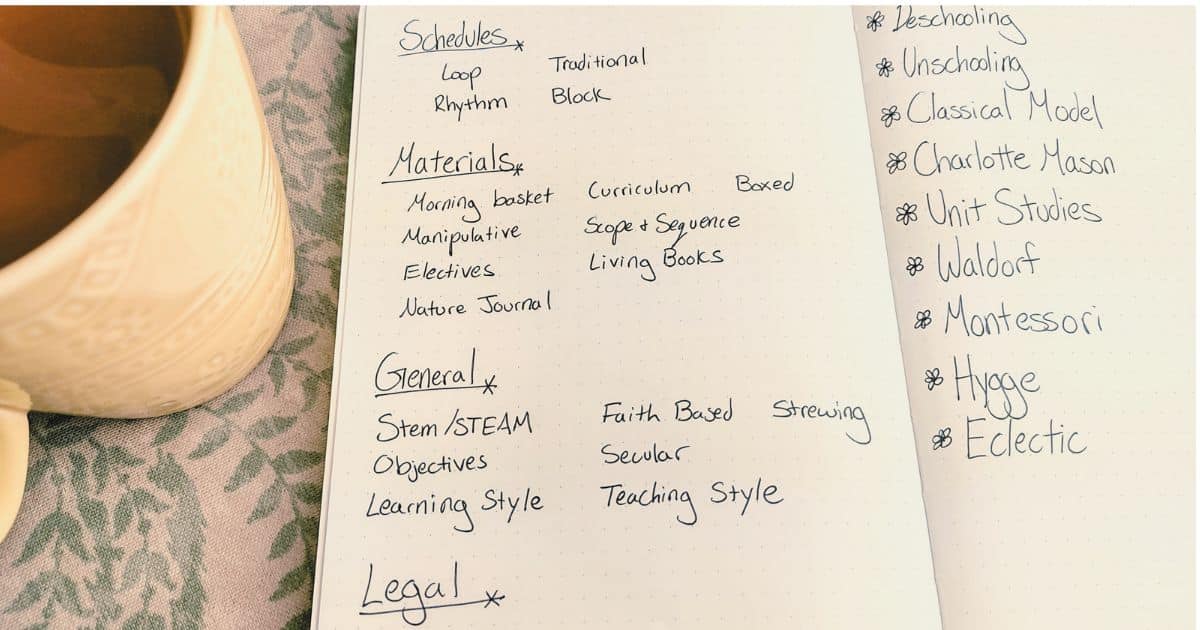 Schedules
Loop Traditional
Rhythm Block
Materials
Morning basket Curriculum Boxed
Manipulative Scope + Sequence
Electives Living Books
Nature Journal
General
Stem/STEAM Faith Based Strewing
Objectives Secular
Learning Style Teaching Style
Legal
Deschooling
Unschooling
Classical Model
Charlotte Mason
Unit Studies
Waldorf
Montessori
Hygge
Eclectic